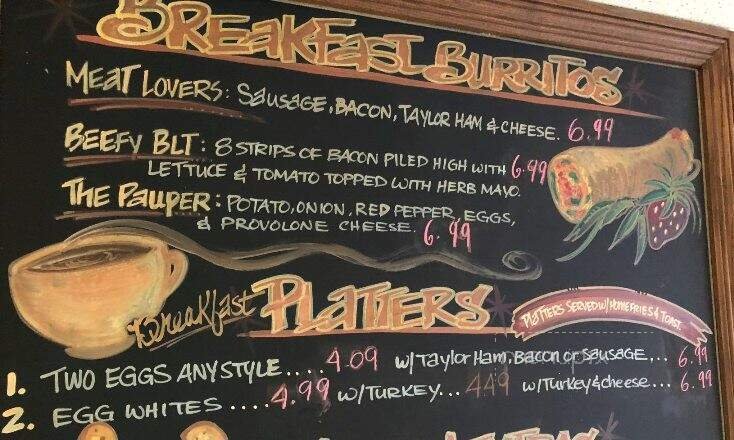 BREAKFAST BURRITOS
MEAT LOVERS: SAUSAGE, BACON, TAYLOR HAM & CHEESE. 6.99
BEEFY BLT: 8 STRIPS OF BACON PILED HIGH WITH 6.99
LETTUCE & TOMATO TOPPED WITH HERB MAYO.
THE PAUPER: POTATO, ONION, RED PEPPER, EGGS,
& PROVOLONE CHEESE. 6.99
Breakfast PLATTERS
PLATTERS SERVED W/HOMEFRIES & TOAST
1. TWO EGGS ANY STYLE.... 4.09 w/Taylor Ham, Bacon or Sausage,... 6.99
2. EGG WHITES .... 4.99 w/TURKEY... 4.49 w/Turkey & cheese... 6.99